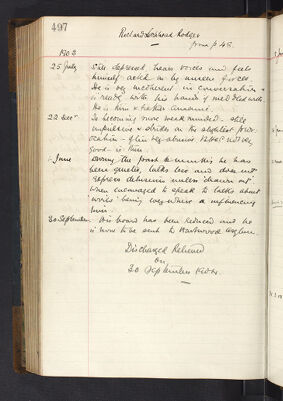 497
Richard Snshead Hodges
from p 45.
1903
25 July Still depressed, hears voices and feels
himself acted on by unseen forces.
He is very incoherent in conversation &
is ready with his hands if meddled with
He is thin &
is becoming more weak minded
impulsive & strikes on the slightest prov-
ocation - often very abusive
good is thin.
June During the past 6 months he has
been quieter, talks less and does not
express delusions unless "drawn out"
when encouraged to speak he talks about
wires being everywhere & influencing
him.
30 September His board has been reduced and he
is now to be sent to Asylum.
Discharged Relieved
on
30 September